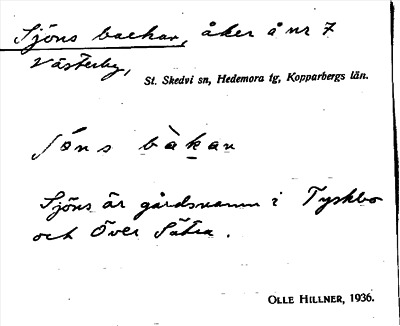 Sjöns backar, åker å nr 7
Västerby,
St. Skedvi sn, Hedemora tg, Kopparbergs län.
ʃö́ns bàkan
Sjöns är gårdsnamn i Tyskbo
och Över Sätra.
OLLE HILLNER, 1936.